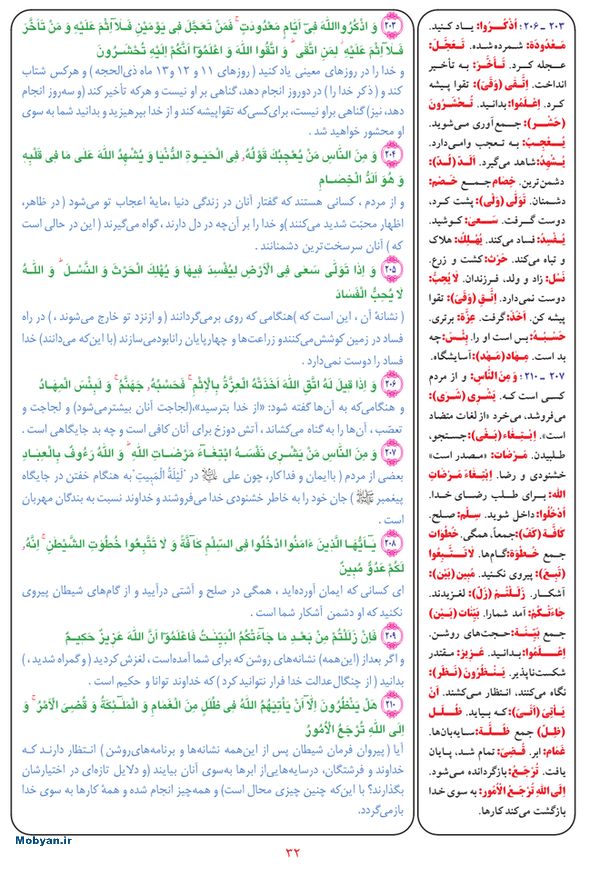 ۲۰۳ - ۲۰۶: اُذْکُرُوا: یاد کنید.
مَعْدُودَة: شمرده شده. تَعَجَّلَ:
عجله کرد. تَأَخَّرَ: به تأخیر
انداخت. اِتَّقی (وَقَیَ): تقوا پیشه
کرد. اِعْلَمُوا: بدانید. تُحْشَرُونَ
(حَشْر): جمع‌آوری می‌شوید.
یُعْجِبُ: به تعجب وامی‌دارد.
یُشْهِدُ: شاهد می‌گیرد. اَلَدّ (لَدّ):
دشمن‌ترین. خِصام جمع خَصْم:
دشمنان. تَوَلّی (وَلّی): پشت کرد،
دوست گرفت. سَعی: کوشید.
یُفْسِدَ: فساد می‌کند. یُهْلِكَ: هلاک
و تباه می‌کند. حَرْث: کشت و زرع.
نَسْل: زاد و ولد، فرزندان. لا یُحِبُّ:
دوست نمی‌دارد. اِتَّقِ (وَقَیَ): تقوا
پیشه کن. اَخَذَ: گرفت. عِزَّة: برتری.
حَسْبُهُ: بس است او را. بِئْسَ: چه
بد است. مِهاد (مَهْد): آسایشگاه.
۲۰۷ - ۲۱۰: وَ مِنَ النّاس: و از مردم
کسی است که. یَشْری (شَری):
می‌فروشد، می‌خرد «از لغات متضاد
است». اِبْتِغاء (بَغی): جستجو،
طلبیدن. مَرْضات: «مصدر است»
خشنودی و رضا. اِبْتِغاءَ مَرْضاتِ
اللهِ: برای طلب رضای خدا.
اُدْخُلُوا: داخل شوید. سِلْم: صلح.
کافَّة (کَفّ): جمعاً، همگی. خُطُوات
جمع خُطْوَة: گام‌ها. لا تَتَّبِعُوا
(تَبِعَ): پیروی نکنید. مُبین (بَیَنَ):
آشکار. زَلَلْتُمْ (زَلّ): لغزیدند.
جاءَتْکُمْ: آمد شما را. بَیِّنات (بَیَنَ)
جمع بَیِّنَة: حجت‌های روشن.
اِعْلَمُوا: بدانید. عَزیز: مقتدر
شکست‌ناپذیر. یَنْظُرُونَ (نَظَرَ):
نگاه می‌کنند، انتظار می‌کشند. اَنْ
یَأْتِیَ (اَتی): که بیاید. ظُلَل
(ظِلّ) جمع ظُلَّة: سایه‌بان‌ها.
غَمام: ابر. قُضِیَ: تمام شد، پایان
یافت. تُرْجَعُ: بازگردانده می‌شود.
اِلَی اللهِ تُرْجَعُ الْاُمُور: به سوی خدا
بازگشت می‌کند کارها.
۲۰۳ وَ اذْکُرُوا اللهَ فی اَیّامٍ مَعْدُودٰتٍ ۚ فَمَنْ تَعَجَّلَ فی یَوْمَیْنِ فَلاٰ اِثْمَ عَلَیْهِ وَ مَنْ تَاَخَّرَ
فَلاٰ اِثْمَ عَلَیْهِ ۙ لِمَنِ اتَّقٰی ۗ وَ اتَّقُوا اللهَ وَ اعْلَمُوا اَنَّکُمْ اِلَیْهِ تُحْشَرُونَ
و خدا را در روزهای معینی یاد کنید ( روزهای ۱۱ و ۱۲ و ۱۳ ماه ذی‌الحجه ) و هرکس شتاب
کند و ( ذکر خدا را ) در دوروز انجام دهد، گناهی بر او نیست و هرکه تأخیر کند (و سه‌روز انجام
دهد، نیز) گناهی براو نیست، برای‌کسی‌که تقواپیشه کند و از خدا بپرهیزید و بدانید شما به سوی
او محشور خواهید شد .
۲۰۴ وَ مِنَ النّاسِ مَنْ یُعْجِبُكَ قَوْلُهُ فِی الْحَیٰوةِ الدُّنْیا وَ یُشْهِدُ اللهَ عَلٰی ما فی قَلْبِه
وَ هُوَ اَلَدُّ الْخِصامِ
و از مردم ، کسانی هستند که گفتار آنان در زندگی دنیا ،مایهٔ اعجاب تو می‌شود ( در ظاهر،
اظهار محبّت شدید می‌کنند )و خدا را بر آن‌چه در دل دارند ، گواه می‌گیرند ( این در حالی است
که ) آنان سرسخت‌ترین دشمنانند .
۲۰۵ وَ اِذا تَوَلّٰی سَعٰی فِی الْاَرْضِ لِیُفْسِدَ فیها وَ یُهْلِكَ الْحَرْثَ وَ النَّسْلَ ۗ وَ اللهُ
لا یُحِبُّ الْفَسادَ
( نشانهٔ آن ، این است که )هنگامی‌که روی برمی‌گردانند ( و ازنزد تو خارج می‌شوند ، ) در راه
فساد در زمین کوشش‌می‌کنندو زراعت‌ها و چهارپایان رانابودمی‌سازند (با این‌که می‌دانند) خدا
فساد را دوست نمی‌دارد .
۲۰۶ وَ اِذا قیلَ لَهُ اتَّقِ اللهَ اَخَذَتْهُ الْعِزَّةُ بِالْاِثْمِ ۚ فَحَسْبُهُ جَهَنَّمُ ۚ وَ لَبِئْسَ الْمِهادُ
و هنگامی‌که به آن‌ها گفته شود: «از خدا بترسید»،(لجاجت آنان بیشترمی‌شود) و لجاجت و
تعصّب ، آن‌ها را به گناه می‌کشاند ، آتش دوزخ برای آنان کافی است و چه بد جایگاهی است .
۲۰۷ وَ مِنَ النّاسِ مَنْ یَشْری نَفْسَهُ ابْتِغآءَ مَرْضاتِ اللهِ ۗ وَ اللهُ رَءُوفٌ بِالْعِبادِ
بعضی از مردم ( باایمان و فداکار، چون علی در "لَیْلَةُ الْمَبیتِ" به هنگام خفتن در جایگاه
پیغمبر ) جان خود را به خاطر خشنودی خدا می‌فروشند و خداوند نسبت به بندگان مهربان
است .
۲۰۸ یٰٓاَیُّهَا الَّذینَ ءٰامَنُوا ادْخُلُوا فِی السِّلْمِ کآفَّةً وَ لا تَتَّبِعُوا خُطُوٰتِ الشَّیْطٰنِ ۚ اِنَّهُ
لَکُمْ عَدُوٌّ مُبینٌ
ای کسانی که ایمان آورده‌اید ، همگی در صلح و آشتی درآیید و از گام‌های شیطان پیروی
نکنید که او دشمن آشکار شما است .
۲۰۹ فَاِنْ زَلَلْتُمْ مِنْ بَعْدِ ما جآءَتْکُمُ الْبَیِّنٰتُ فَاعْلَمُوا اَنَّ اللهَ عَزیزٌ حَکیمٌ
و اگر بعداز (این‌همه) نشانه‌های روشن که برای شما آمده‌است ، لغزش کردید ( و گمراه شدید ، )
بدانید ( از چنگال‌عدالت خدا فرار نتوانید کرد ) که خداوند توانا و حکیم است .
۲۱۰ هَلْ یَنْظُرُونَ اِلّآ اَنْ یَأْتِیَهُمُ اللهُ فی ظُلَلٍ مِنَ الْغَمامِ وَ الْمَلٰٓئِکَةُ وَ قُضِیَ الْاَمْرُ ۚ وَ
اِلَی اللهِ تُرْجَعُ الْاُمُورُ
آیا ( پیروان فرمان شیطان پس از این‌همه نشانه‌ها و برنامه‌های‌روشن ) انتظار دارند که
خداوند و فرشتگان، درسایه‌هایی‌از ابرها به‌سوی آنان بیایند (و دلایل تازه‌ای در اختیارشان
بگذارند؟ با این‌که چنین چیزی محال است) و همه‌چیز انجام شده و همهٔ کارها به سوی خدا
بازمی‌گردد.
Mobyan.ir
۳۲